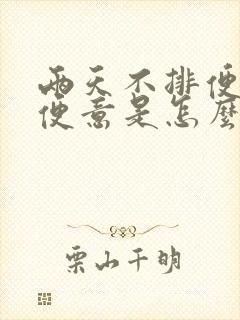 两天不排便
便意是怎麼
栗山千明